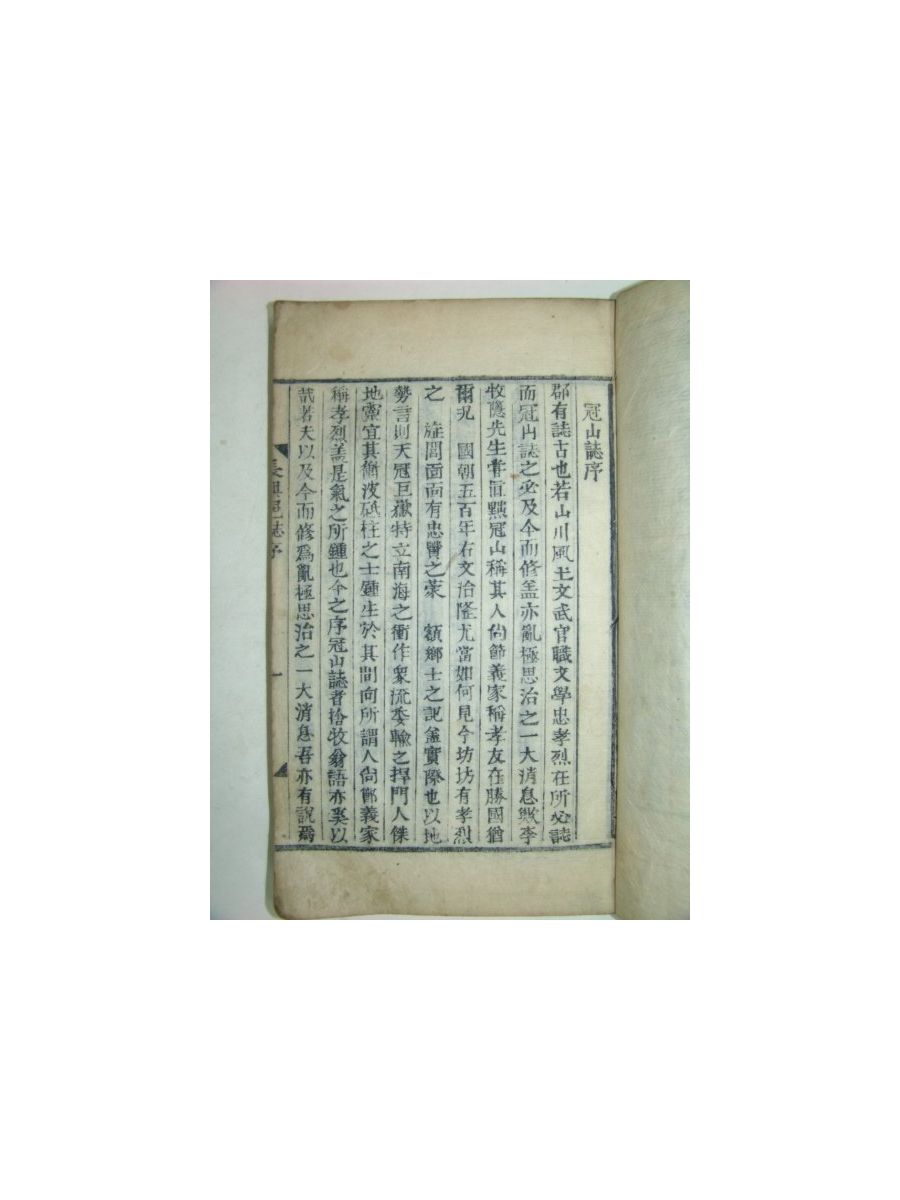 冠山誌序
郡有誌古也若山川風土文武官職文學忠孝烈在所必誌
而冠山誌之必及今而修盖亦亂極思治之一大消息歟李
牧隱先生甞冠山稱其人尙節義家稱孝友在勝國猶
爾况 國朝五百年右文治隆尤當如何見今坊坊有孝烈
之 㫌閭面面有忠賢之蒙 額鄕士之記盖實際也以地
勢言則天冠巨嶽特立南海之衝作衆流委輸之捍門人傑
地靈宜其衝波砥柱之士鍾生於其間向所謂人尙節義家
稱孝烈盖是氣之所鍾也今之序冠山誌者捨牧翁語亦奚以
哉若夫以及今而修爲亂極思治之一大消息吾亦有說焉
長興邑誌序
一